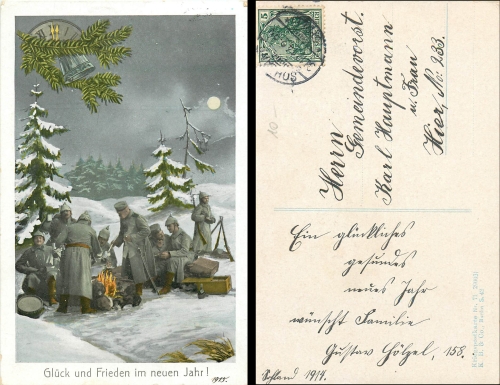 Glück und Frieden im neuen Jahr!
1915.
5
Herrn
Gemeindevorst.
Karl Hauptmann
u. Frau
Hier, No: 233.
Ein glückliches
gesundes
neues Jahr
wünscht Familie
Gustav Hölzel, 158.
1914.
10-